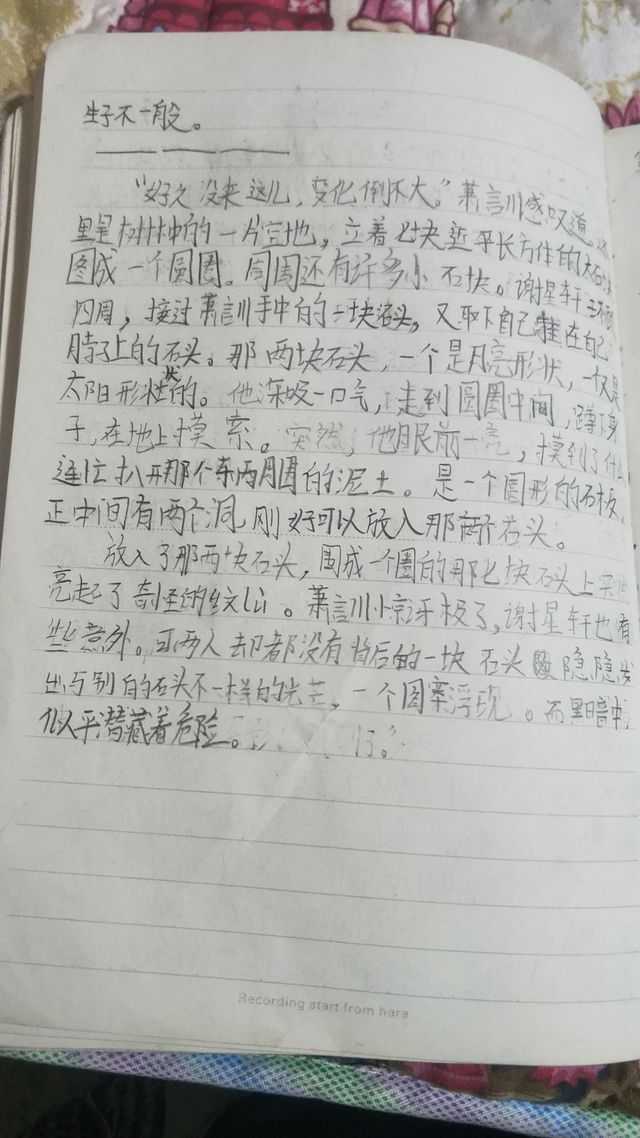 生子不一般。
"好久没来这儿,变化倒不大。"萧訁川感叹道。
里是树林中的一片空地,立着七块近乎长方体的大石
围成一个圆圈。周围还有许多小石块。谢星轩
四周,接过萧訁川手中的一块石头,又取下自己挂在自己
脖子上的石头。那两块石头,一个是月亮形状,一
太阳形状的。他深吸一口气,走到圆圈中间,蹲下身
子,在地上摸索。突然,他眼前一亮,摸到了什
连忙扒开那个东西周围的泥土。是一个圆形的石板,
正中间有两个洞,刚好可以放入那两个石头。
放入了那两块石头,围成一个圈的那七块石头上
亮起了奇怪的纹山。萧訁川惊讶极了,谢星轩也有
些意外。可两人却都没有背后的一块石头隐隐发
出与别的石头不一样的光芒,一个图案浮现。而黑暗中,
似乎潜藏着危险。
Recording start from here